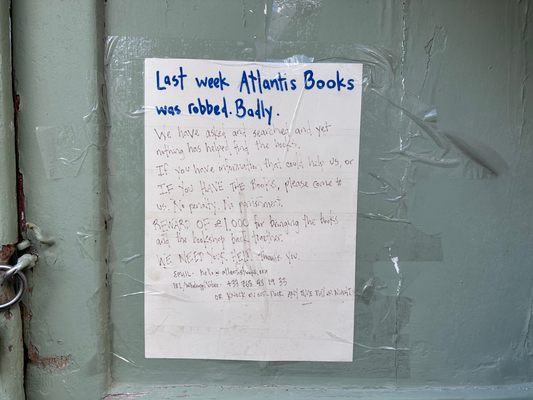 Last week Atlantis Books
was robbed. Badly.
We have asked and searched and yet
nothing has helped find the books.
If you have information that could help us, or
IF YOU HAVE THE BOOKS, please come to
us. No penalty. No punishment.
REWARD OF €1,000 for bringing the books
and the bookshop back together.
WE NEED YOUR HELP. Thank you.
EMAIL -
TEL/Whatsapp/Viber: +33
OR KNOCK ON OUR DOOR ANY TIME DAY OR NIGHT